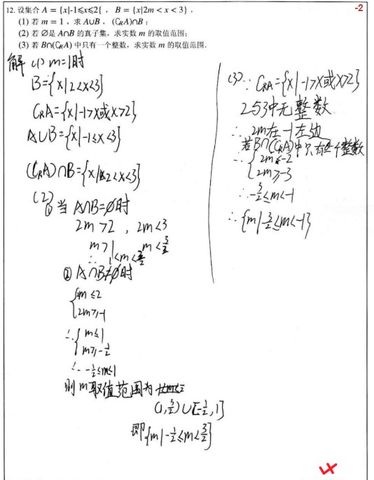 12. 设集合 A = {x|-1≤x≤2}, B = {x|2m < x < 3}.
-2
(1) 若 m = 1, 求 A∪B, (∁RA)∩B;
(2) 若 ∅是 A∩B 的真子集, 求实数 m 的取值范围;
(3) 若 B∩(∁RA) 中只有一个整数, 求实数 m 的取值范围.
解 (1) m=1时
B={x|2<x<3}
∁RA={x|-1>x或x>2}
A∪B={x|-1≤x<3}
(∁RA)∩B={x|2<x<3}
(2)
① 当 A∩B=∅时
2m>2, 2m<3
m>1 m<3/2
∴ 1<m<3/2
② A∩B≠∅时
m≤2
2m≥-1
∴ { m≤1
m≥-1/2
∴ -1/2≤m≤1
则m取值范围为
(1,3/2)∪[-1/2,1]
即{m|-1/2≤m<3/2}
(3)∵ ∁RA={x|-1>x或x>2}
2与3中无整数
∴ 2m在-1左边
若B∩(∁RA)中只有一个整数
∴ { 2m<-2
2m≥-3
∴ -3/2≤m<-1
∴ {m|-3/2≤m<-1}